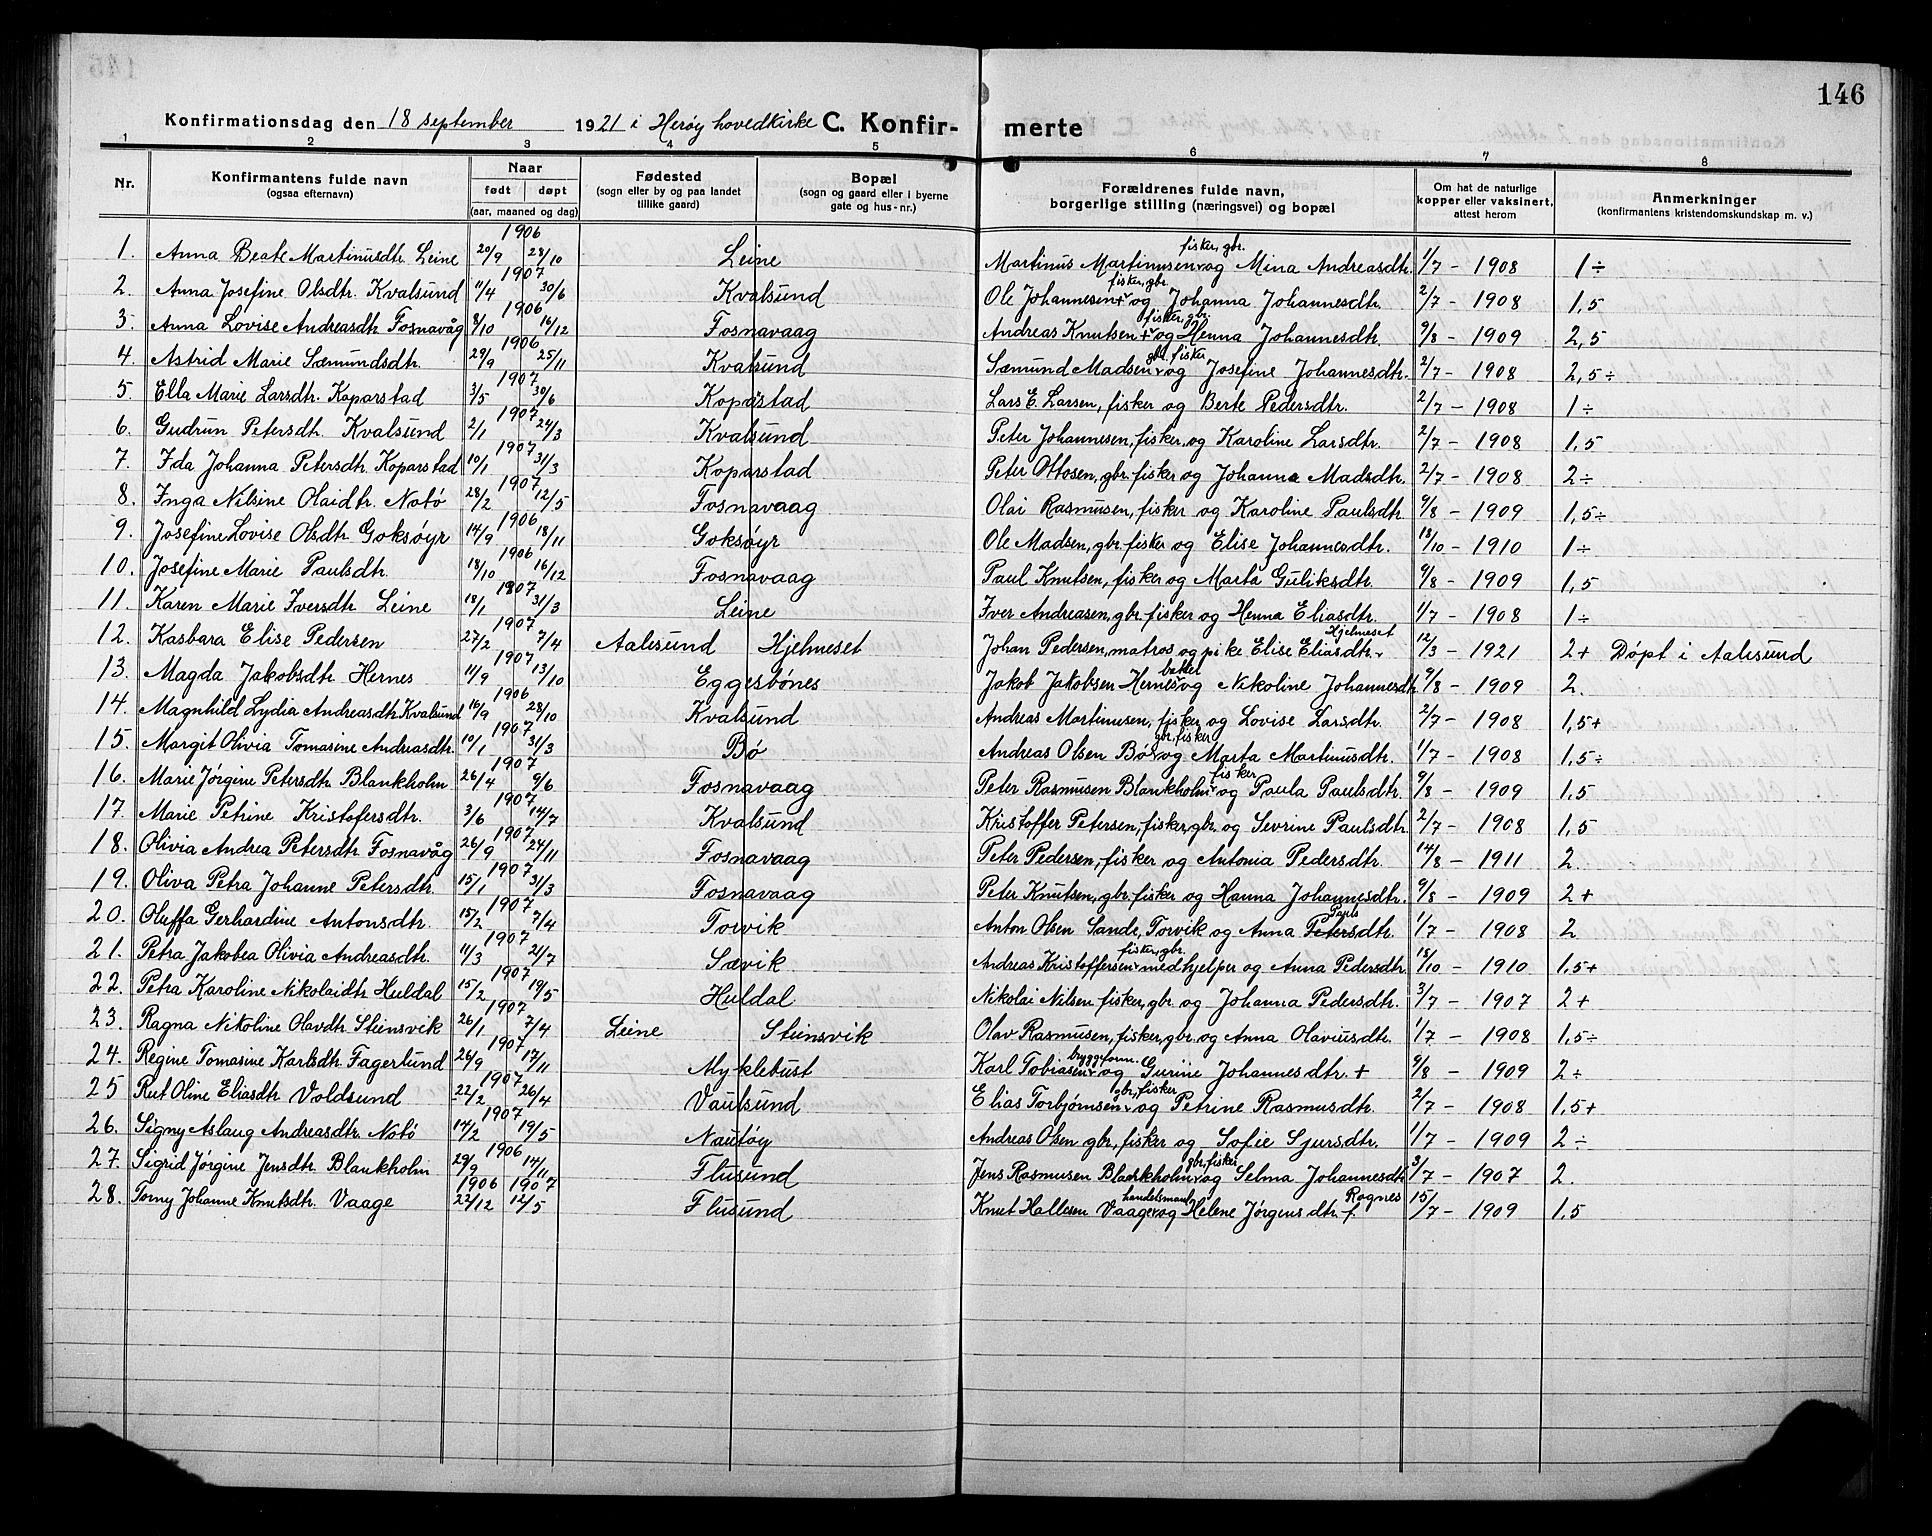 146
Konfirmationsdag den 18 september 1921 i Herøy hovedkirke C. Konfir- merte
1 2 3 4 5 6 7 8
Nr. Konfirmantens fulde navn (ogsaa efternavn) Naar født døpt (aar, maaned og dag) Fødested (sogn eller by og paa landet tillike gaard) Bopæl (sogn og gaard eller i byerne gate og hus-nr.) Forældrenes fulde navn, borgerlige stilling (næringsvei) og bopæl Om hat de naturlige kopper eller vaksinert, attest herom Anmerkninger (konfirmantens kristendomskundskap m. v.)
1. Anna Beate Martinusdtr. Leine 1906 20/9 28/10 Leine Martinus Martinusen fisker, gbr. og Mina Andreasdtr. 1/7 - 1908 1÷
2. Anna Josefine Olsdtr. Kvalsund 1907 11/4 30/6 Kvalsund Ole Johannesen+ fisker, gbr. og Johanna Johannesdtr. 2/7 - 1908 1,5
3. Anna Lovise Andreasdtr. Fosnavåg 1906 8/10 16/12 Fosnavaag Andreas Knutsen+ fisker, gbr. og Henna Johannesdtr. 9/8 - 1909 2,5
4. Astrid Marie Sæmundsdtr. 1906 29/9 25/11 Kvalsund Sæmund Madsen gbr. fisker og Josefine Johannesdtr. 2/7 - 1908 2,5÷
5. Ella Marie Larsdtr. Koparstad 1907 3/5 30/6 Koparstad Lars E. Larsen, fisker og Berte Pedersdtr. 2/7 - 1908 1÷
6. Gudrun Petersdtr. Kvalsund 1907 2/1 24/3 Kvalsund Peter Johannesen, fisker, og Karoline Larsdtr. 2/7 - 1908 1,5
7. Ida Johanna Petersdtr. Koparstad 1907 10/1 31/3 Koparstad Peter Ottosen, gbr. fisker og Johanna Madsdtr. 2/7 - 1908 2÷
8. Inga Nilsine Olaidtr. Notø 1907 28/2 12/5 Fosnavaag Olai Rasmusen, fisker og Karoline Paulsdtr. 9/8 - 1909 1,5÷
9. Josefine Lovise Olsdtr. Goksøyr 1906 14/9 18/11 Goksøyr Ole Madsen, gbr. fisker og Elise Johannesdtr. 18/10 - 1910 1÷
10. Josefine Marie Paulsdtr. 1906 18/10 16/12 Fosnavaag Paul Knutsen, fisker og Marta Guliksdtr. 9/8 - 1909 1,5
11. Karen Marie Iversdtr. Leine 1807 18/1 31/3 Leine Iver Andreasen, gbr. fisker og Henna Eliasdtr. 1/7 - 1908 1÷
12. Kasbara Elise Pedersen 1907 27/2 7/4 Aalesund Hjelmeset Johan Pedersen, matros og pike Elise Eliasdtr. Hjelmeset 12/3 - 1921 2+ Døpt i Aalesund
13. Magda Jakobsdtr. Hernes 1907 11/9 13/10 Eggesbønes Jakob Jakobsen Hernes og Nikoline Johannesdtr. 9/8 - 1909 2.
14. Magnhild Lydia Andreasdtr. Kvalsund 1906 16/9 28/10 Kvalsund Andreas Martinusen, fisker og Lovise Larsdtr. 2/7 - 1908 1,5+
15. Margit Olivia Tomasine Andreasdtr. 1907 10/1 31/3 Bø Andreas Olsen Bø gbr. fisker og Marta Martinusdtr. 1/7 - 1908 1,5÷
16. Marie Jørgine Petersdtr. Blankholm 1907 26/4 9/6 Fosnavaag Peter Rasmusen Blankholm fisker og Paula Paulsdtr. 9/8 - 1909 1,5
17 Marie Petrine Kristofersdtr. 1907 3/6 14/7 Kvalsund Kristoffer Petersen, fisker, gbr. og Sevrine Paulsdtr. 2/7 - 1908 1,5
18. Olivia Andrea Petersdtr. Fosnavåg 1907 26/9 24/11 Fosnavaag Peter Pedersen, fisker og Antonia Pedersdtr. 14/8 - 1911 2.
19. Oliva Petra Johanne Petersdtr. 1907 15/1 31/3 Fosnavaag Peter Knutsen, gbr. fisker og Hanna Johannesdtr. 9/8 - 1909 2+
20. Oluffa Gerhardine Antonsdtr. 1907 15/2 7/4 Torvik Anton Olsen Sande, Torvik og Anna Petersdtr. Pauls 1/7 - 1908 2
21. Petra Jakobea Olivia Andreasdtr. 1907 11/3 21/7 Sævik Andreas Kristoffersen fisker, gbr. medhjelper og Anna Pedersdtr. 18/10 - 1910 1,5+
22. Petra Karoline Nikolaidtr. Huldal 1907 15/2 19/5 Huldal Nikolai Nilsen fisker, gbr. og Johanna Pedersdtr. 3/7 - 1907 2+
23. Ragna Nikoline Olavdtr. Steinsvik 1907 26/1 7/4 Leine Steinsvik Olav Rasmusen, fisker, gbr. og Anna Olaviusdtr. 1/7 - 1908 1,5÷
24. Regine Tomasine Karlsdtr. Fagerlund 1907 26/9 17/11 Myklebust Karl Tobiasen byggform. og Gurine Johannesdtr. + 9/8 - 1909 2÷
25 Rut Oline Eliasdtr. Voldsund 1907 22/2 26/4 Vaulsund Elias Torbjørnsen gbr, fisker og Petrine Rasmusdtr. 2/7 - 1908 1,5+
26. Signy Aslaug Andreasdtr. Notø 1907 14/2 19/5 Nautøy Andreas Olsen gbr, fisker og Sofie Sjursdtr. 1/7 - 1909 2÷
27. Sigrid Jørgine Jensdtr. Blankholm 1906 29/9 14/11 Flusund Jens Rasmusen Blankholm gbr, fisker og Selma Johannesdtr. 3/7 - 1907 2.
28. Torny Johanne Knutsdtr. Vaage 1906 22/12 1907 12/5 Flusund Knut Hallesen Vaage handelsmand og Helene Jørgensdtr. f. Rognes 15/7 - 1909 1,5